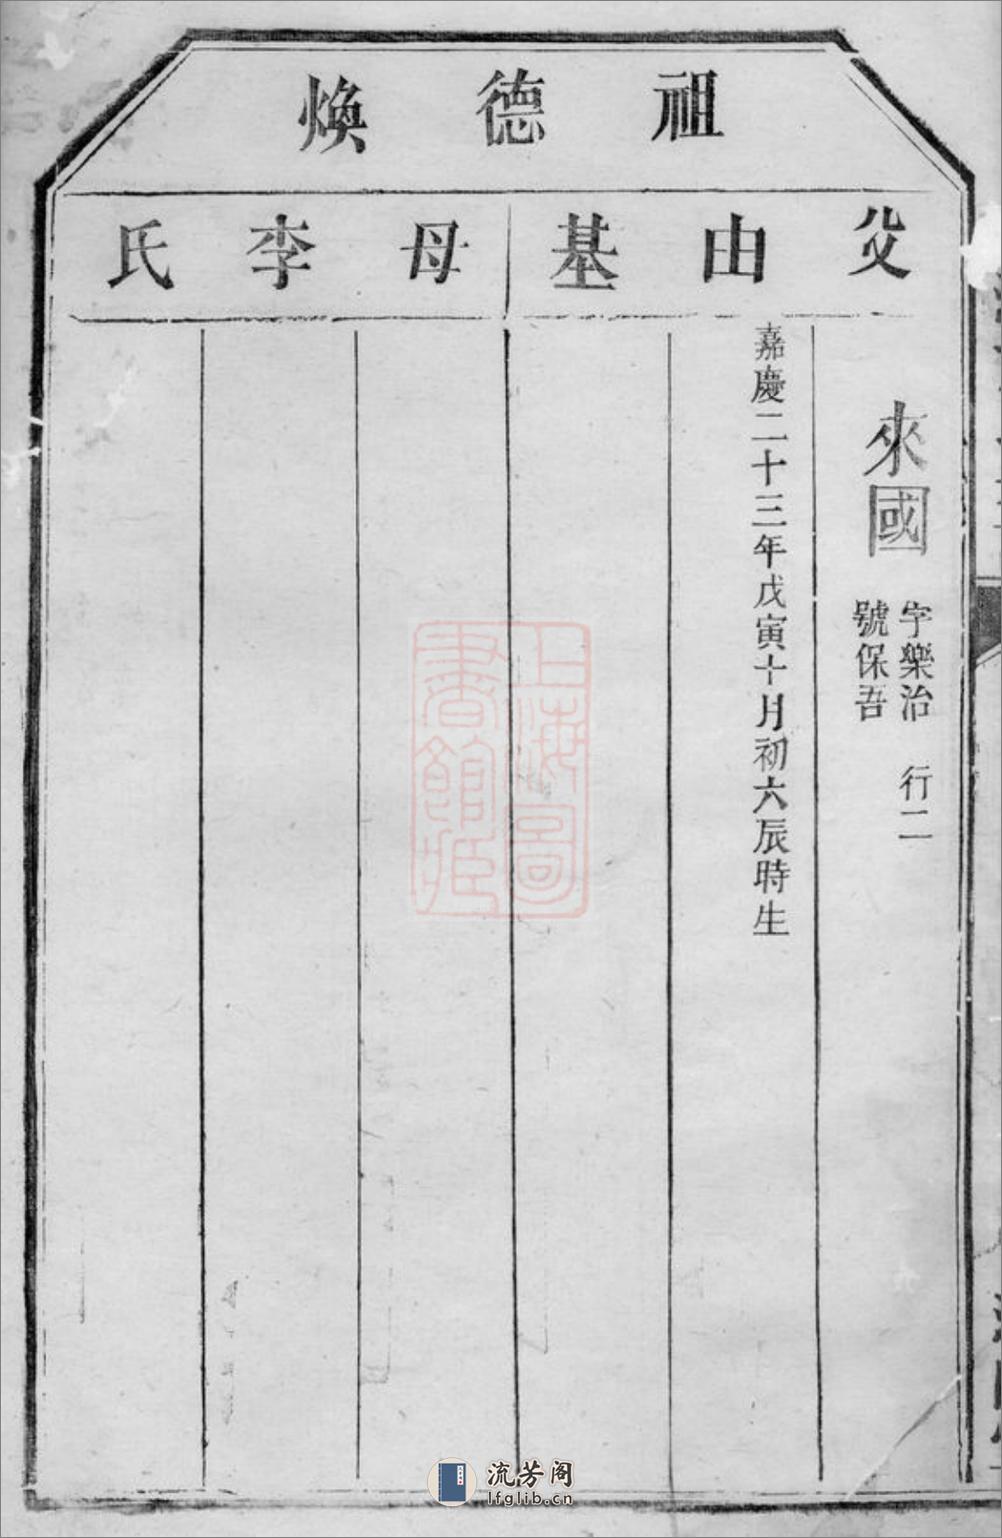 祖德煥
父由基
母李氏
來國
字樂治 行二
號保吾
嘉慶二十三年戊寅十月初六辰時生
上海圖
書館藏
流芳阁
lfglib.cn